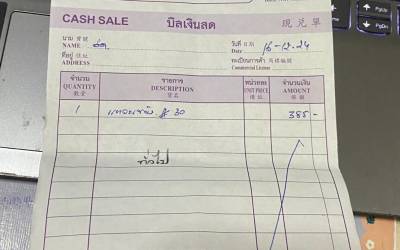 CASH SALE บิลเงินสด 現兌單
นาม 寶號
NAME
วันที่ 日期
DATE 16-12-24
ที่อยู่ 住址
ADDRESS
ทะเบียนการค้า 商標編號
Commercial License
จำนวน รายการ หน่วยละ จำนวนเงิน
QUANTITY DESCRIPTION UNIT PRICE AMOUNT
數量 貨名 價值 銀額
1 # 30 385 -
ทั่วไป